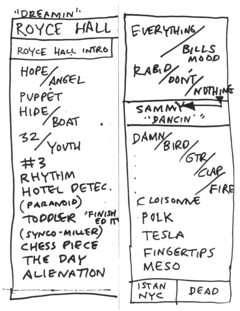 "DREAMIN"
ROYCE HALL
ROYCE HALL INTRO
HOPE/ANGEL
PUPPET
HIDE/BOAT
32/YOUTH
#3
RHYTHM
HOTEL DETEC.
(PARANOID)
TODDLER "FINISH ED IT"
(SYNCO-MILLER)
CHESS PIECE
THE DAY
ALIENATION
EVERYTHING/BILLS MOOD
RABID/DONT/NUTHING
SAMMY
"DANCIN"
DAMN/BIRD/GTR/CLAP/FIRE
CLOISONNE
POLK
TESLA
FINGERTIPS
MESO
ISTAN NYC
DEAD